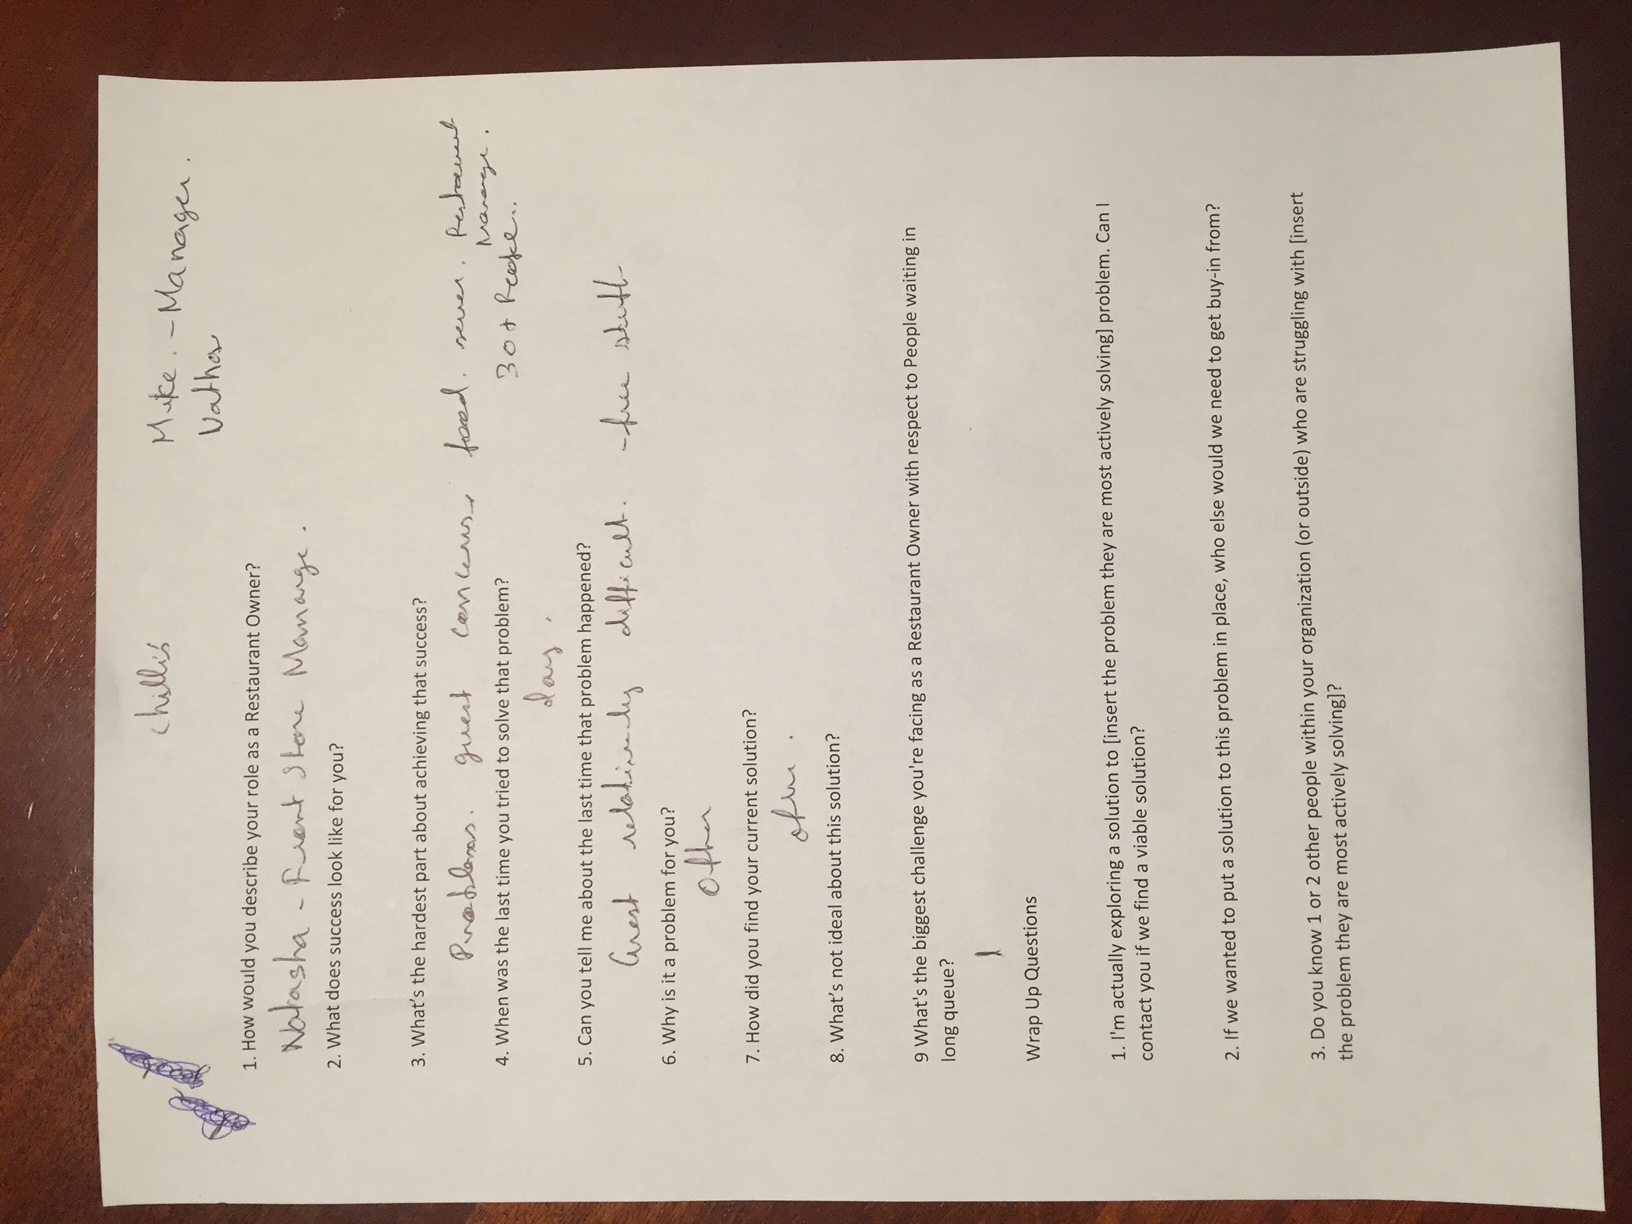 chilli's
Mike. - Manager.
Nathan
1. How would you describe your role as a Restaurant Owner?
Natasha - Front Store Manage.
2. What does success look like for you?
3. What's the hardest part about achieving that success?
Problems. guest concerns, food.
Manage.
4. When was the last time you tried to solve that problem?
30+ People..
day.
5. Can you tell me about the last time that problem happened?
Guest difficult. - free stuff
6. Why is it a problem for you?
often
7. How did you find your current solution?
8. What's not ideal about this solution?
9 What's the biggest challenge you're facing as a Restaurant Owner with respect to People waiting in
long queue?
Wrap Up Questions
1. I'm actually exploring a solution to [insert the problem they are most actively solving] problem. Can I
contact you if we find a viable solution?
2. If we wanted to put a solution to this problem in place, who else would we need to get buy-in from?
3. Do you know 1 or 2 other people within your organization (or outside) who are struggling with [insert
the problem they are most actively solving]?